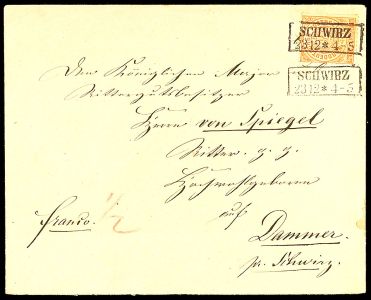 SCHWIRZ
23 12 * 4-5
SCHWIRZ
23 12 * 4-5
Dem Königlichen Major
Rittergutsbesitzer
Herrn von Spiegel
Ritter p. p.
Hochwohlgeboren
auf
franco. 1/2
Dammer.
pr. Schwirz.